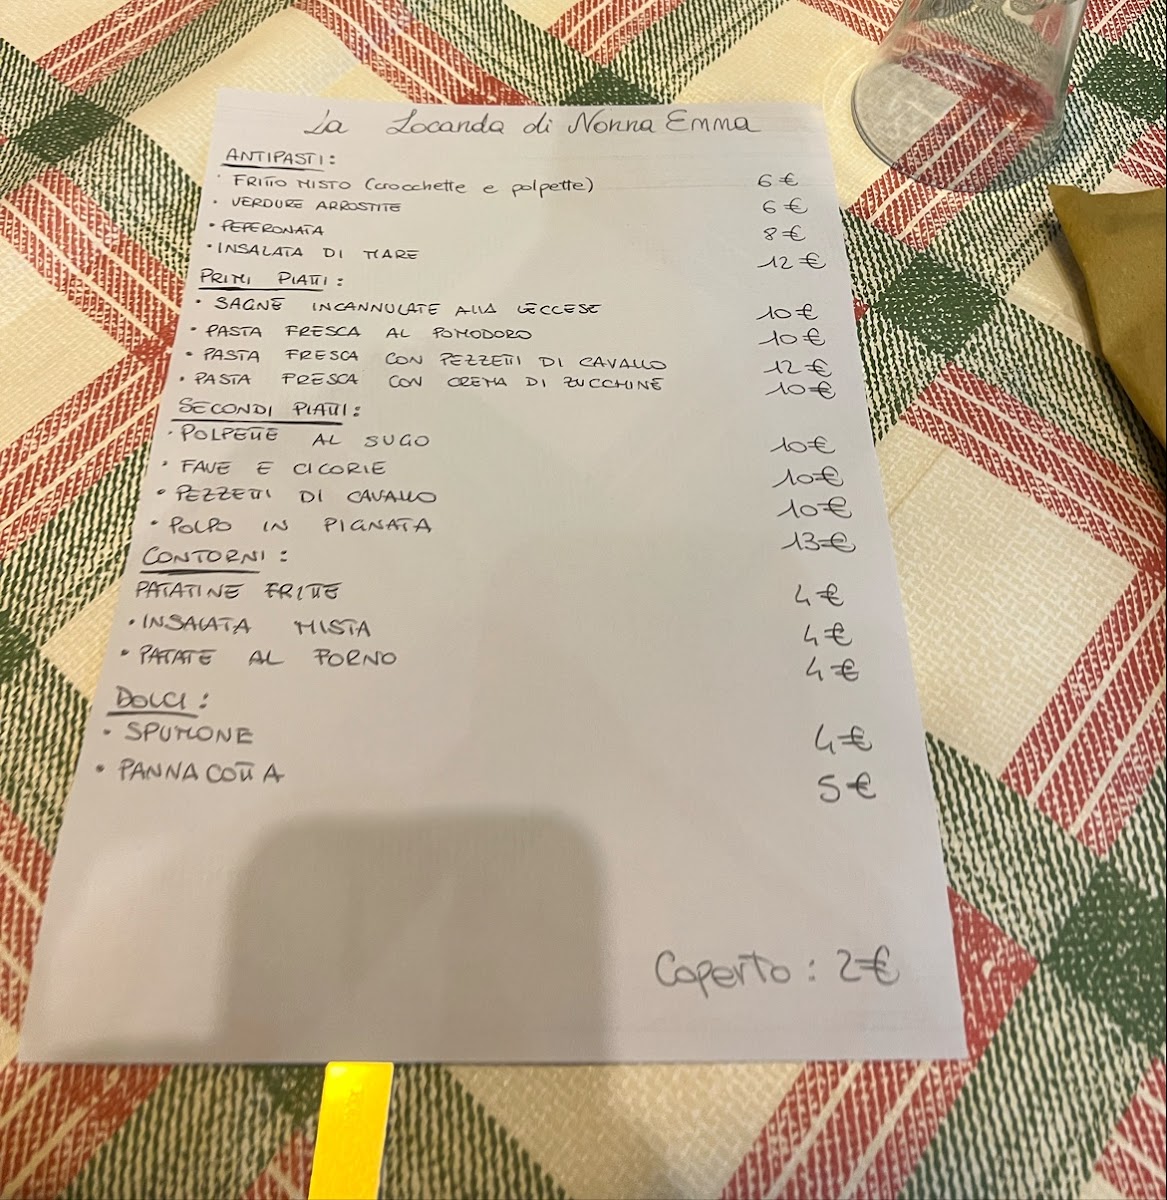 La Locanda di Nonna Emma
ANTIPASTI:
FRITTO MISTO (crocchette e polpette) 6 €
• VERDURE ARROSTITE 6 €
• PEPERONATA 8 €
• INSALATA DI MARE 12 €
PRIMI PIATTI:
• SAGNE INCANNULATE ALLA LECCESE 10 €
• PASTA FRESCA AL POMODORO 10 €
• PASTA FRESCA CON PEZZETTI DI CAVALLO 12 €
• PASTA FRESCA CON CREMA DI ZUCCHINE 10 €
SECONDI PIATTI:
• POLPETTE AL SUGO 10 €
• FAVE E CICORIE 10 €
• PEZZETTI DI CAVALLO 10 €
• POLPO IN PIGNATA 13 €
CONTORNI:
PATATINE FRITTE 4 €
• INSALATA MISTA 4 €
• PATATE AL FORNO 4 €
DOLCI:
• SPUMONE 4 €
• PANNA COTTA 5 €
Coperto: 2 €